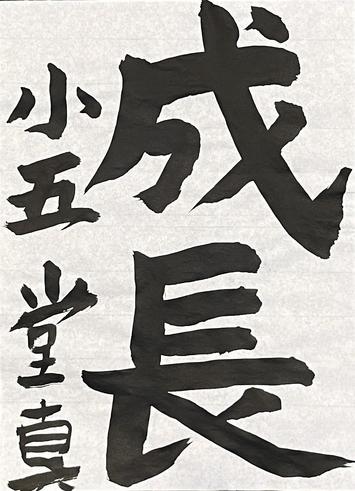 成長
小五 堂真